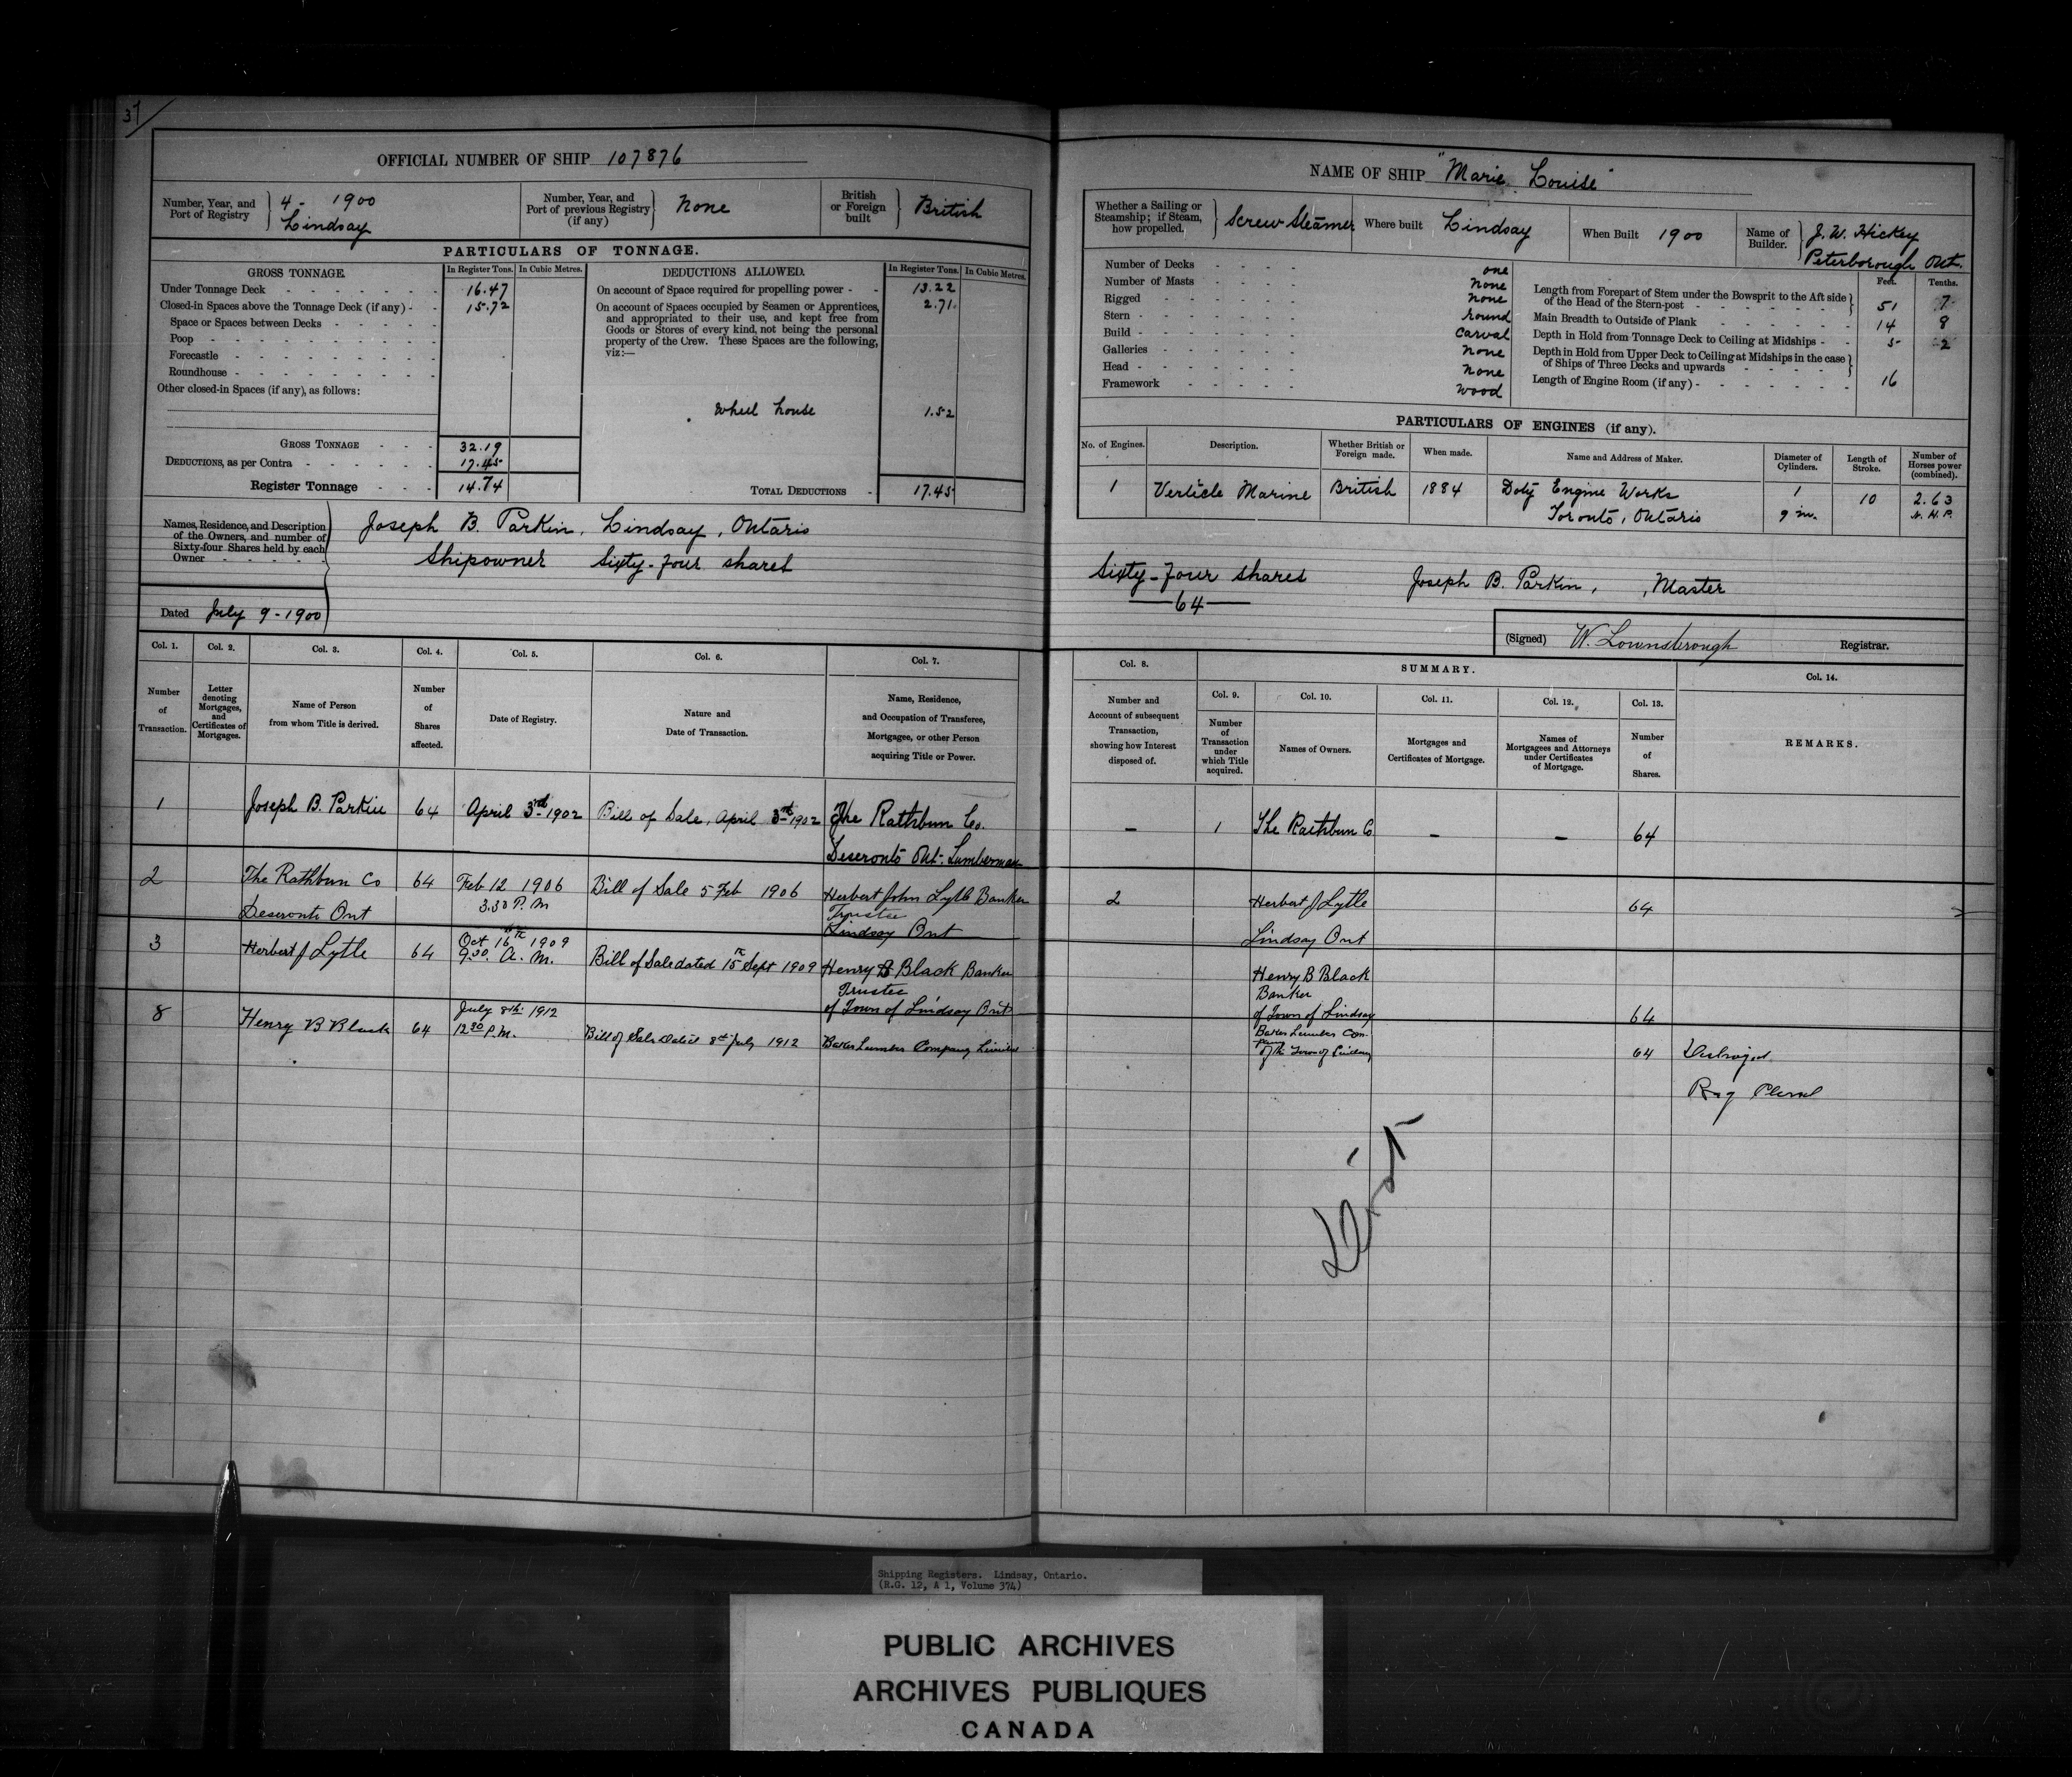 37
OFFICIAL NUMBER OF SHIP 107876
Number, Year, and Port of Registry } 4 - 1900 Lindsay
Number, Year, and Port of previous Registry (if any) } None
British or Foreign built } British
PARTICULARS OF TONNAGE.
GROSS TONNAGE. In Register Tons. In Cubic Metres.
Under Tonnage Deck - 16.47
Closed-in Spaces above the Tonnage Deck (if any) - 15.72
Space or Spaces between Decks
Poop
Forecastle
Roundhouse
Other closed-in Spaces (if any), as follows:
GROSS TONNAGE 32.19
DEDUCTIONS, as per Contra 17.45
Register Tonnage 14.74
DEDUCTIONS ALLOWED. In Register Tons. In Cubic Metres.
On account of Space required for propelling power - 13.22
On account of Spaces occupied by Seamen or Apprentices, 2.71
and appropriated to their use, and kept free from
Goods or Stores of every kind, not being the personal
property of the Crew. These Spaces are the following,
viz:—
Wheel house 1.52
TOTAL DEDUCTIONS - 17.45
Names, Residence, and Description of the Owners, and number of Sixty-four Shares held by each Owner
Joseph B. Parkin, Lindsay, Ontario
Shipowner Sixty-four shares
Dated July 9 - 1900
Col. 1. Col. 2. Col. 3. Col. 4. Col. 5. Col. 6. Col. 7.
Number of Transaction.
Letter denoting Mortgages, and Certificates of Mortgages.
Name of Person from whom Title is derived.
Number of Shares affected.
Date of Registry.
Nature and Date of Transaction.
Name, Residence, and Occupation of Transferee, Mortgagee, or other Person acquiring Title or Power.
1 Joseph B. Parkin 64 April 3rd 1902 Bill of Sale, April 3rd 1902 The Rathbun Co.
Deseronto Ont. Lumberman
2 The Rathbun Co 64 Feb 12 1906 Bill of Sale 5 Feb 1906 Herbert John Lytle Banker
Deseronto Ont 3.30 P.M Trustee
Lindsay Ont
3 Herbert J Lytle 64 Oct 16th 1909 9.30 A.M. Bill of Sale dated 15th Sept 1909 Henry B Black Banker
Trustee
of Town of Lindsay Ont
8 Henry B Black 64 July 8th 1912 12 30 P.M. Bill of Sale dated 8th July 1912 Baker Lumber Company Limited
NAME OF SHIP "Marie Louise"
Whether a Sailing or Steamship; if Steam, how propelled. } Screw Steamer
Where built Lindsay
When Built 1900
Name of Builder. } J. W. Hickey
Peterborough Ont.
Number of Decks one
Number of Masts None
Rigged None
Stern round
Build Carval
Galleries None
Head None
Framework Wood
Feet. Tenths.
Length from Forepart of Stem under the Bowsprit to the Aft side of the Head of the Stern-post 51 7
Main Breadth to Outside of Plank 14 8
Depth in Hold from Tonnage Deck to Ceiling at Midships - 5 2
Depth in Hold from Upper Deck to Ceiling at Midships in the case of Ships of Three Decks and upwards
Length of Engine Room (if any) 16
PARTICULARS OF ENGINES (if any).
No. of Engines. Description. Whether British or Foreign made. When made. Name and Address of Maker. Diameter of Cylinders. Length of Stroke. Number of Horses power (combined).
1 Verticle Marine British 1884 Doty Engine Works 1 10 2.63
Toronto, Ontario 9 in. N.H.P.
Sixty-four shares Joseph B. Parkin, , Master
— 64 —
(Signed) W. Lownsbrough Registrar.
Col. 8. SUMMARY. Col. 14.
Col. 9. Col. 10. Col. 11. Col. 12. Col. 13.
Number and Account of subsequent Transaction, showing how Interest disposed of.
Number of Transaction under which Title acquired.
Names of Owners.
Mortgages and Certificates of Mortgage.
Names of Mortgagees and Attorneys under Certificates of Mortgage.
Number of Shares.
REMARKS.
— 1 The Rathbun Co — — 64
2 Herbert J Lytle 64
Lindsay Ont
Henry B Black
Banker
of Town of Lindsay 64
Baker Lumber Company
of the Town of Lindsay 64 Destroyed
Reg Closed
Shipping Registers. Lindsay, Ontario.
(R.G. 12, A 1, Volume 374)
PUBLIC ARCHIVES
ARCHIVES PUBLIQUES
CANADA